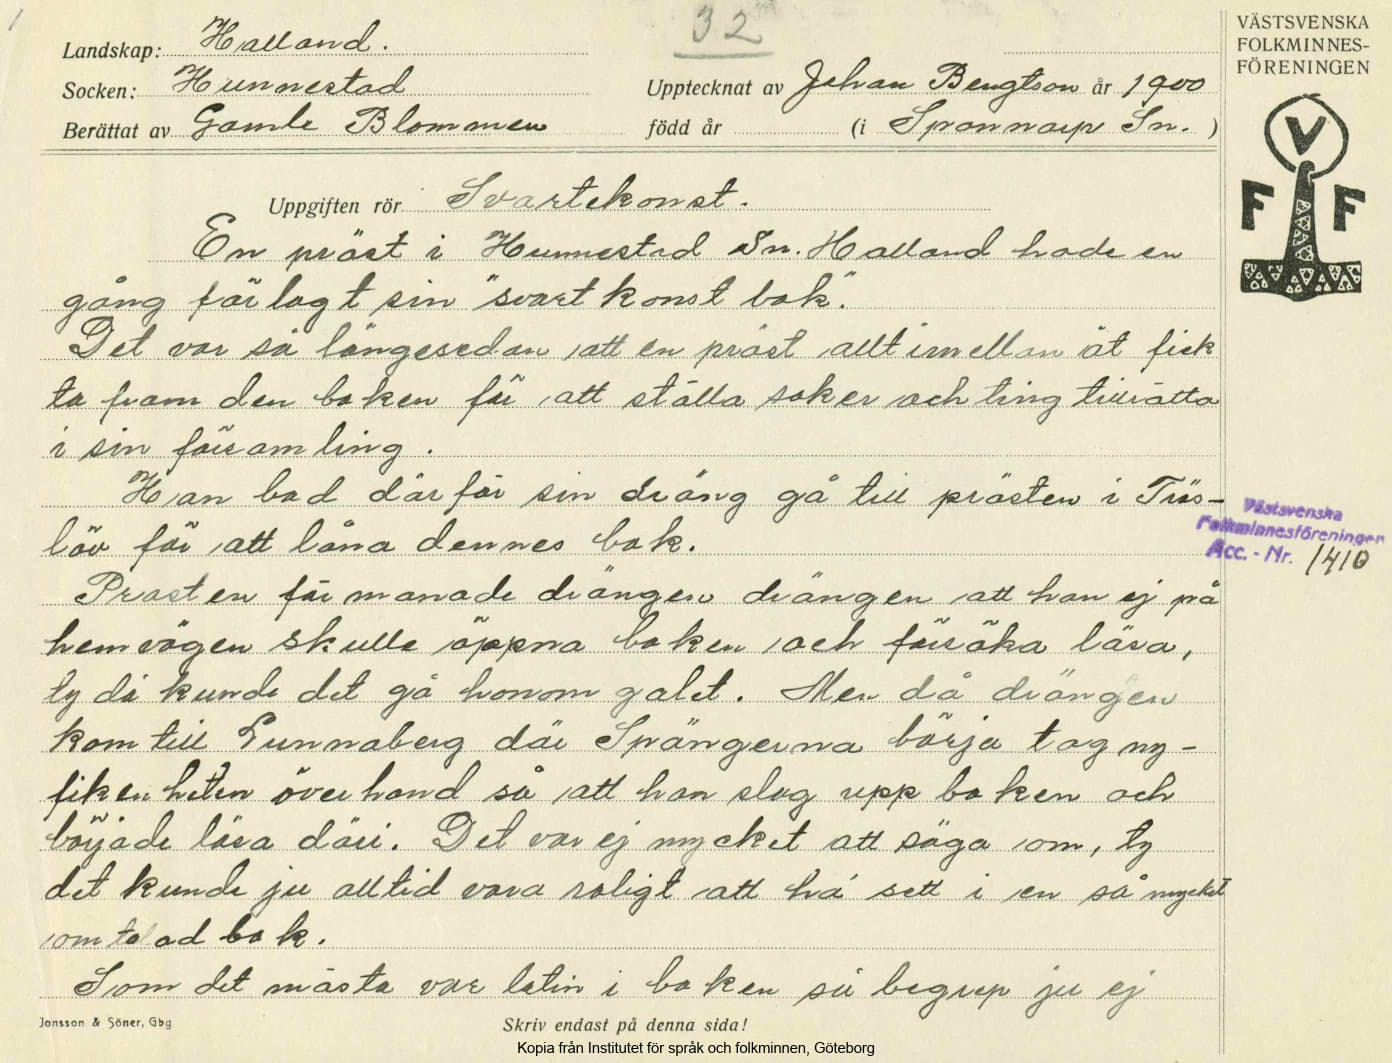 1
32
VÄSTSVENSKA
FOLKMINNES-
FÖRENINGEN
V
F F
Landskap: Halland.
Socken: Hunnestad
Upptecknat av Johan Bengtson år 1900
Berättat av Gamle Blommen
född år (i Spannarp Sn. )
Uppgiften rör Svartekonst.
En präst i Hunnestad Sn. Halland hade en
gång förlagt sin "svart konst bok".
Det var så längesedan att en präst allt imellan åt fick
ta fram den boken för att ställa saker och ting tillrätta
i sin församling.
Han bad därför sin dräng gå till prästen i Träs-
löv för att låna dennes bok.
Prasten förmanade drängen drängen att han ej på
hemvägen skulle öppna boken och försöka läsa,
ty då kunde det gå honom galet. Men då drängen
kom till Gunnaberg där Spängerna börja tog ny-
fikenheten överhand så att han slog upp boken och
började läsa däri. Det var ej mycket att säga om, ty
det kunde ju alltid vara roligt att ha' sett i en så mycket
omtalad bok.
Som det mästa var latin i boken så begrep ju ej
Västsvenska
Folkminnesföreningen
Acc. - Nr. 1410
Jonsson & Söner, Gbg
Skriv endast på denna sida!
Kopia från Institutet för språk och folkminnen, Göteborg